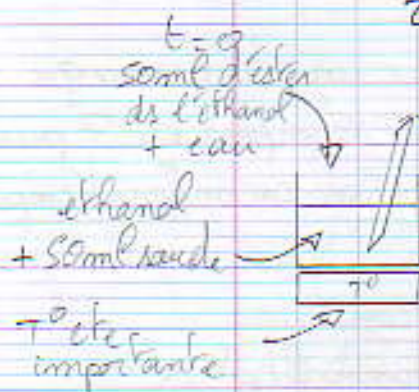 t = 0
50ml d'ester
ds l'éthanol
+ eau
éthanol
+ 50ml soude
T°
T° cte
importante